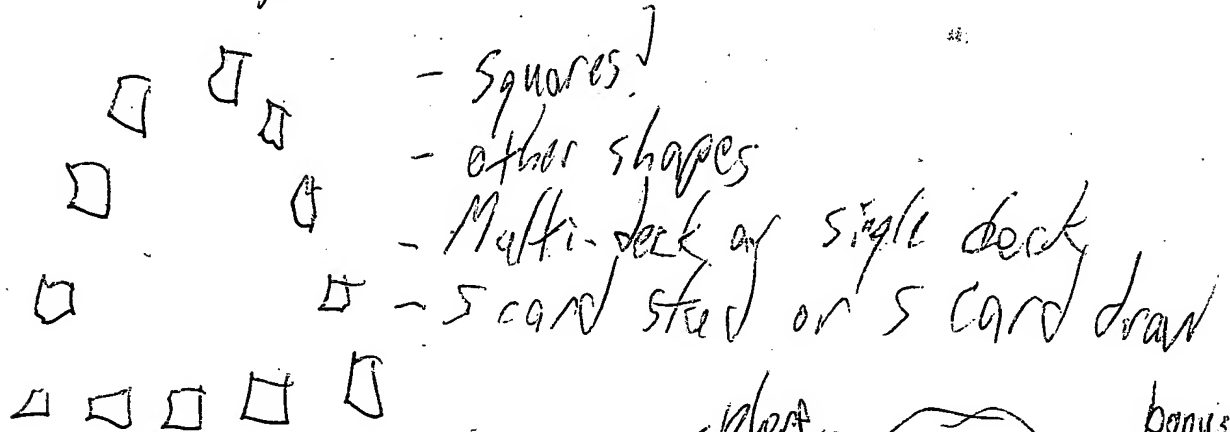 - squares
- other shapes
- Multi-deck or single deck
- 5 card stud or 5 card draw
bonus